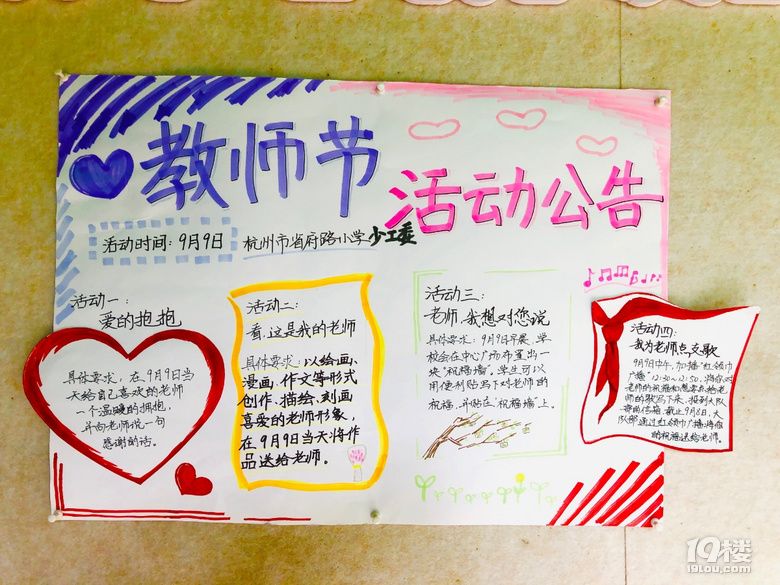 教师节
活动公告
活动时间：9月9日
杭州市省府路小学少工委
活动一：
爱的抱抱
具体要求：在9月9日当
天给自己喜欢的老师
一个温暖的拥抱，
并向老师说一句
感谢的话。
活动二：
看，这是我的老师
具体要求：以绘画、
漫画、作文等形式
创作、描绘、刻画
喜爱的老师形象，
在9月9日当天将作
品送给老师。
活动三：
老师，我想对您说
具体要求：9月9日早晨，学
校会在中心广场布置出一
块“祝福墙”，学生可以
用便利贴写下对老师的
祝福，并贴在“祝福墙”上。
活动四：
我为老师点支歌
9月9日中午，加播“红领巾
广播”12:30—12:50，将你对
老师的祝福和想要点给老
师的歌写下来，投到大队
部的信箱，截止9月8日，大
队部通过红领巾广播将你
的祝福送给老师。
19楼
19lou.com